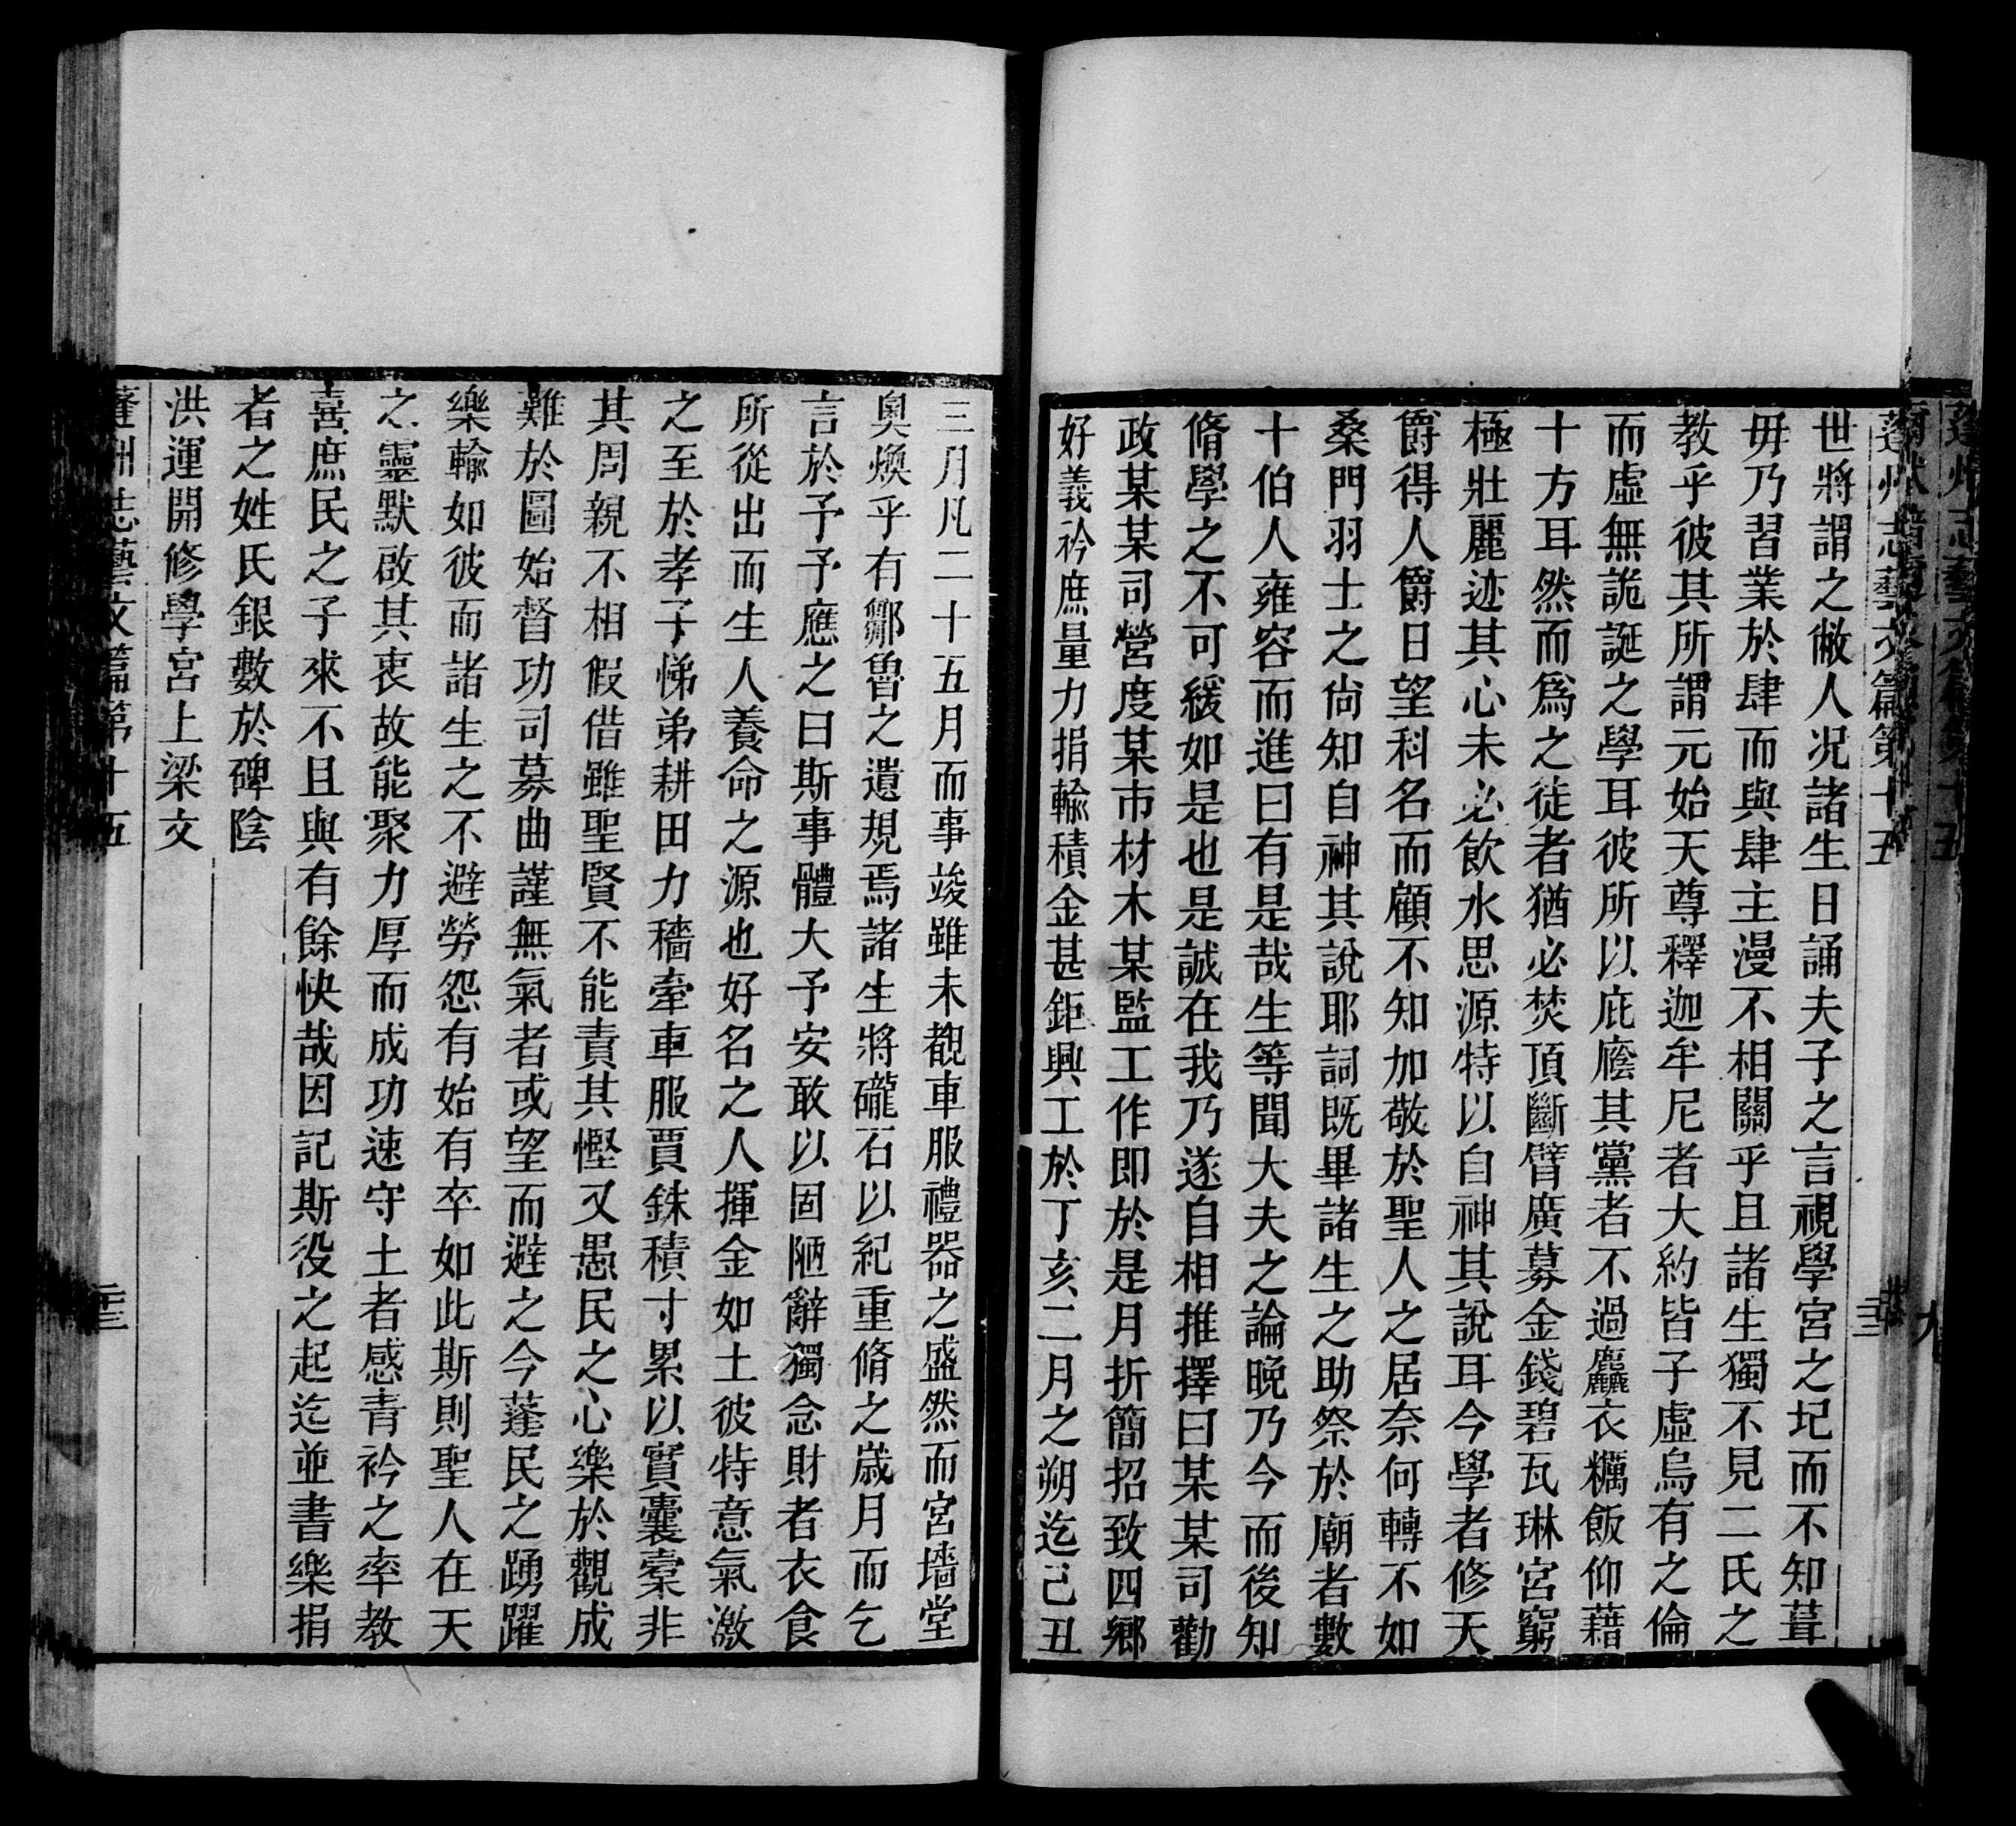 蓬州志藝文篇第十五
世將謂之敝人况諸生日誦夫子之言視學宮之圮而不知葺
毋乃習業於肆而與肆主漫不相關乎且諸生獨不見二氏之
教乎彼其所謂元始天尊釋迦牟尼者大約皆子虛烏有之倫
而虛無詭誕之學耳彼所以庇廕其黨者不過麤衣糲飯仰藉
十方耳然而爲之徒者猶必焚頂斷臂廣募金錢碧瓦琳宮窮
極壯麗迹其心未必飲水思源特以自神其說耳今學者修天
爵得人爵日望科名而顧不知加敬於聖人之居奈何轉不如
桑門羽士之尙知自神其說耶詞既畢諸生之助祭於廟者數
十伯人雍容而進曰有是哉生等聞大夫之論晚乃今而後知
脩學之不可緩如是也是誠在我乃遂自相推擇曰某某司勸
政某某司營度某市材木某監工作即於是月折簡招致四鄉
好義衿庶量力捐輸積金甚鉅興工於丁亥二月之朔迄己丑
三月凡二十五月而事竣雖未覩車服禮器之盛然而宮墻堂
奧煥乎有鄒魯之遺規焉諸生將礲石以紀重脩之歲月而乞
言於予予應之曰斯事體大予安敢以固陋辭獨念財者衣食
所從出而生人養命之源也好名之人揮金如土彼特意氣激
之至於孝子悌弟耕田力穡牽車服賈銖積寸累以實囊橐非
其周親不相假借雖聖賢不能責其慳又愚民之心樂於觀成
難於圖始督功司募曲謹無氣者或望而避之今蓬民之踴躍
樂輸如彼而諸生之不避勞怨有始有卒如此斯則聖人在天
之靈默啟其衷故能聚力厚而成功速守土者感青衿之率教
喜庶民之子來不且與有餘快哉因記斯役之起迄並書樂捐
者之姓氏銀數於碑陰
洪運開修學宮上梁文
蓬州志藝文篇第十五